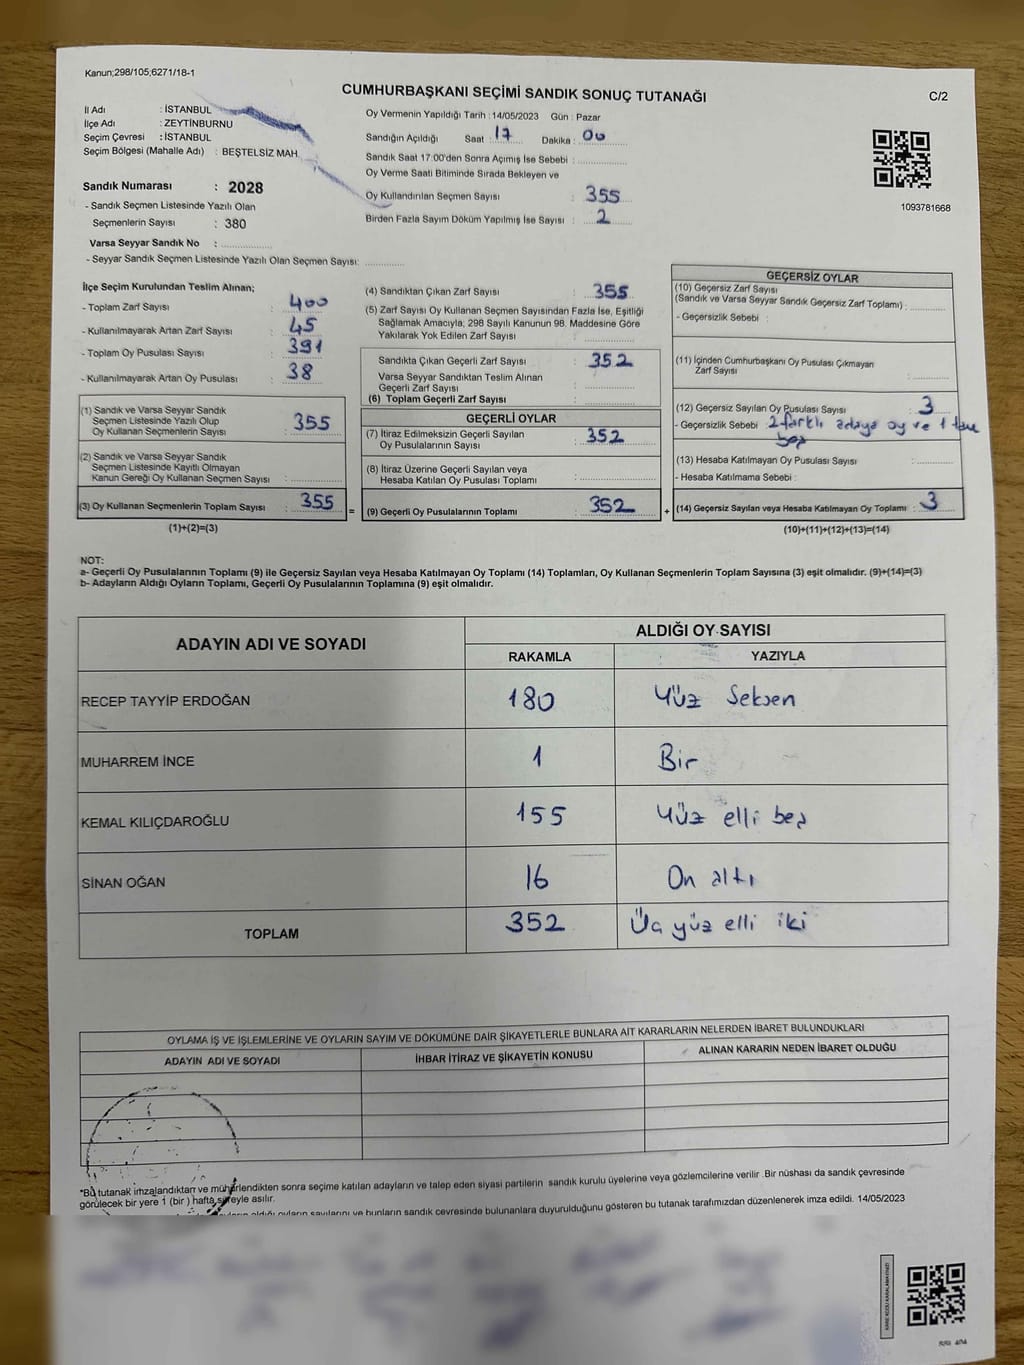 Kanun;298/105;6271/18-1
CUMHURBAŞKANI SEÇİMİ SANDIK SONUÇ TUTANAĞI
C/2
İl Adı : İSTANBUL
İlçe Adı : ZEYTİNBURNU
Seçim Çevresi : İSTANBUL
Seçim Bölgesi (Mahalle Adı) : BEŞTELSİZ MAH.
Sandık Numarası : 2028
- Sandık Seçmen Listesinde Yazılı Olan
Seçmenlerin Sayısı : 380
Varsa Seyyar Sandık No : ................
- Seyyar Sandık Seçmen Listesinde Yazılı Olan Seçmen Sayısı: ............
Oy Vermenin Yapıldığı Tarih : 14/05/2023 Gün : Pazar
Sandığın Açıldığı Saat : 17 Dakika : 00
Sandık Saat 17:00'den Sonra Açımış İse Sebebi : ................
Oy Verme Saati Bitiminde Sırada Bekleyen ve
Oy Kullandırılan Seçmen Sayısı : 355
Birden Fazla Sayım Döküm Yapılmış İse Sayısı : 2
1093781668
İlçe Seçim Kurulundan Teslim Alınan;
- Toplam Zarf Sayısı : 400
- Kullanılmayarak Artan Zarf Sayısı : 45
- Toplam Oy Pusulası Sayısı : 391
- Kullanılmayarak Artan Oy Pusulası : 38
(1) Sandık ve Varsa Seyyar Sandık
Seçmen Listesinde Yazılı Olup
Oy Kullanan Seçmenlerin Sayısı : 355
(2) Sandık ve Varsa Seyyar Sandık
Seçmen Listesinde Kayıtlı Olmayan
Kanun Gereği Oy Kullanan Seçmen Sayısı : ............
(3) Oy Kullanan Seçmenlerin Toplam Sayısı : 355
(1)+(2)=(3)
=
(4) Sandıktan Çıkan Zarf Sayısı : 355
(5) Zarf Sayısı Oy Kullanan Seçmen Sayısından Fazla İse, Eşitliği
Sağlamak Amacıyla; 298 Sayılı Kanunun 98. Maddesine Göre
Yakılarak Yok Edilen Zarf Sayısı : ............
Sandıkta Çıkan Geçerli Zarf Sayısı : 352
Varsa Seyyar Sandıktan Teslim Alınan
Geçerli Zarf Sayısı : ............
(6) Toplam Geçerli Zarf Sayısı : ............
GEÇERLİ OYLAR
(7) İtiraz Edilmeksizin Geçerli Sayılan
Oy Pusulalarının Sayısı : 352
(8) İtiraz Üzerine Geçerli Sayılan veya
Hesaba Katılan Oy Pusulası Toplamı : ............
(9) Geçerli Oy Pusulalarının Toplamı : 352
+
GEÇERSİZ OYLAR
(10) Geçersiz Zarf Sayısı
(Sandık ve Varsa Seyyar Sandık Geçersiz Zarf Toplamı) : ........
- Geçersizlik Sebebi :
(11) İçinden Cumhurbaşkanı Oy Pusulası Çıkmayan
Zarf Sayısı : ............
(12) Geçersiz Sayılan Oy Pusulası Sayısı : 3
- Geçersizlik Sebebi : 2 farklı adaya oy ve 1 tane
boş
(13) Hesaba Katılmayan Oy Pusulası Sayısı : ............
- Hesaba Katılmama Sebebi :
(14) Geçersiz Sayılan veya Hesaba Katılmayan Oy Toplamı : 3
(10)+(11)+(12)+(13)=(14)
NOT:
a- Geçerli Oy Pusulalarının Toplamı (9) ile Geçersiz Sayılan veya Hesaba Katılmayan Oy Toplamı (14) Toplamları, Oy Kullanan Seçmenlerin Toplam Sayısına (3) eşit olmalıdır. (9)+(14)=(3)
b- Adayların Aldığı Oyların Toplamı, Geçerli Oy Pusulalarının Toplamına (9) eşit olmalıdır.
ADAYIN ADI VE SOYADI
ALDIĞI OY SAYISI
RAKAMLA YAZIYLA
RECEP TAYYİP ERDOĞAN 180 Yüz Seksen
MUHARREM İNCE 1 Bir
KEMAL KILIÇDAROĞLU 155 Yüz elli beş
SİNAN OĞAN 16 On altı
TOPLAM 352 Üç yüz elli iki
OYLAMA İŞ VE İŞLEMLERİNE VE OYLARIN SAYIM VE DÖKÜMÜNE DAİR ŞİKAYETLERLE BUNLARA AİT KARARLARIN NELERDEN İBARET BULUNDUKLARI
ADAYIN ADI VE SOYADI İHBAR İTİRAZ VE ŞİKAYETİN KONUSU ALINAN KARARIN NEDEN İBARET OLDUĞU
*Bu tutanak imzalandıktan ve mühürlendikten sonra seçime katılan adayların ve talep eden siyasi partilerin sandık kurulu üyelerine veya gözlemcilerine verilir .Bir nüshası da sandık çevresinde
görülecek bir yere 1 (bir ) hafta süreyle asılır.
oyların sayılarını ve bunların sandık çevresinde bulunanlara duyurulduğunu gösteren bu tutanak tarafımızdan düzenlenerek imza edildi. 14/05/2023